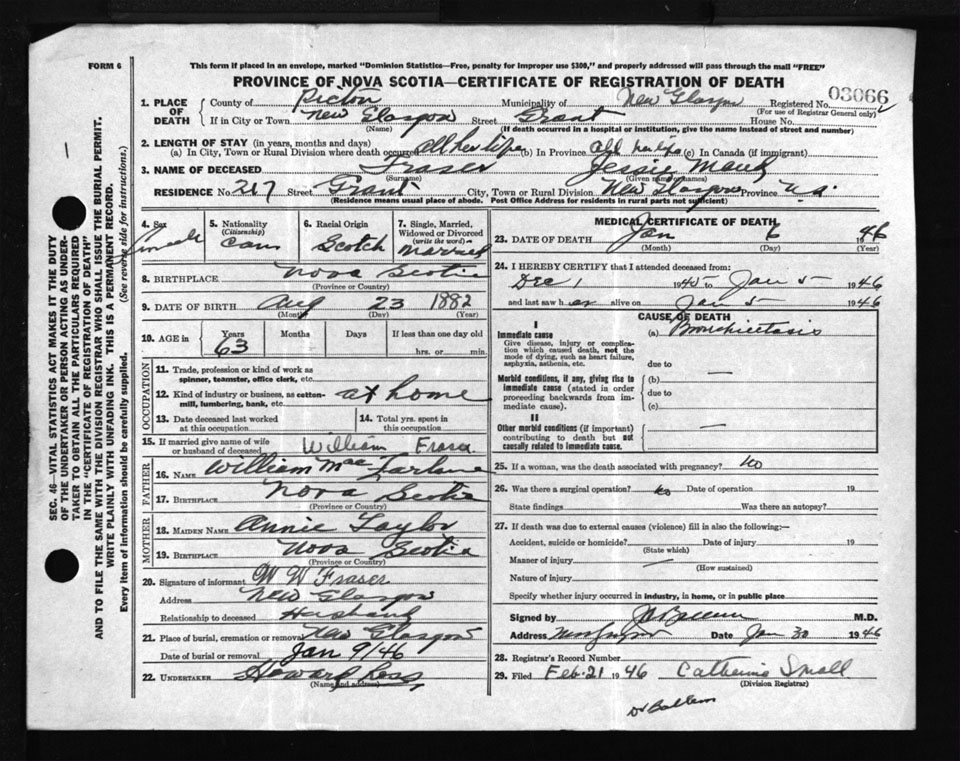 FORM 6
This form if placed in an envelope, marked "Dominion Statistics—Free, penalty for improper use $300," and properly addressed will pass through the mail "FREE"
PROVINCE OF NOVA SCOTIA—CERTIFICATE OF REGISTRATION OF DEATH
03066
1. PLACE OF DEATH County of Pictou Municipality of New Glasgow Registered No.
(For use of Registrar General only)
If in City or Town New Glasgow Street Grant House No.
(Name) (If death occurred in a hospital or institution, give the name instead of street and number)
2. LENGTH OF STAY (in years, months and days)
(a) In City, Town or Rural Division where death occurred all her life (b) In Province all her life (c) In Canada (if immigrant)
3. NAME OF DECEASED Fraser Jessie Maud
(Surname) (Given names)
RESIDENCE No. 217 Street Grant City, Town or Rural Division New Glasgow Province
(Residence means usual place of abode. Post Office Address for residents in rural parts not sufficient)
4. Sex female
5. Nationality (Citizenship) Can
6. Racial Origin Scotch
7. Single, Married, Widowed or Divorced (write the word) Married
8. BIRTHPLACE Nova Scotia
(Province or Country)
9. DATE OF BIRTH Aug 23 1882
(Month) (Day) (Year)
10. AGE in Years 63 Months Days If less than one day old
hrs. or min.
OCCUPATION
11. Trade, profession or kind of work as spinner, teamster, office clerk, etc.
12. Kind of industry or business, as cotton-mill, lumbering, bank, etc. at home
13. Date deceased last worked at this occupation
14. Total yrs. spent in this occupation
15. If married give name of wife or husband of deceased William Fraser
FATHER
16. NAME William MacFarlane
17. BIRTHPLACE Nova Scotia
(Province or Country)
MOTHER
18. MAIDEN NAME Annie Taylor
19. BIRTHPLACE Nova Scotia
(Province or Country)
20. Signature of informant W W Fraser
Address New Glasgow
Relationship to deceased Husband
21. Place of burial, cremation or removal New Glasgow
Date of burial or removal Jan 9/46
22. UNDERTAKER Howard
(Name and address)
MEDICAL CERTIFICATE OF DEATH
23. DATE OF DEATH Jan 6 1946
(Month) (Day) (Year)
24. I HEREBY CERTIFY that I attended deceased from:
Dec 1 1945 to Jan 5 1946
and last saw her alive on Jan 5 1946
CAUSE OF DEATH
I
Immediate cause (a) Bronchiectasis
Give disease, injury or complication which caused death, not the mode of dying, such as heart failure, asphyxia, asthenia, etc.
due to —
Morbid conditions, if any, giving rise to immediate cause (stated in order proceeding backwards from immediate cause).
(b)
due to
(c)
II
Other morbid conditions (if important) contributing to death but not causally related to immediate cause.
—
25. If a woman, was the death associated with pregnancy? No
26. Was there a surgical operation? No Date of operation 19
State findings Was there an autopsy?
27. If death was due to external causes (violence) fill in also the following:—
Accident, suicide or homicide? Date of injury 19
(State which)
Manner of injury —
(How sustained)
Nature of injury
Specify whether injury occurred in industry, in home, or in public place
Signed by M.D.
Address New Glasgow Date Jan 30 1946
28. Registrar's Record Number
29. Filed Feb. 21 1946 Catherine Small
(Division Registrar)
Dr Ballem
SEC. 46—VITAL STATISTICS ACT MAKES IT THE DUTY
OF THE UNDERTAKER OR PERSON ACTING AS UNDER-
TAKER TO OBTAIN ALL THE PARTICULARS REQUIRED
IN THE "CERTIFICATE OF REGISTRATION OF DEATH"
AND TO FILE THE SAME WITH THE DIVISION REGISTRAR WHO SHALL ISSUE THE BURIAL PERMIT.
WRITE PLAINLY WITH UNFADING INK. THIS IS A PERMANENT RECORD.
Every item of information should be carefully supplied. (See reverse side for instructions.)